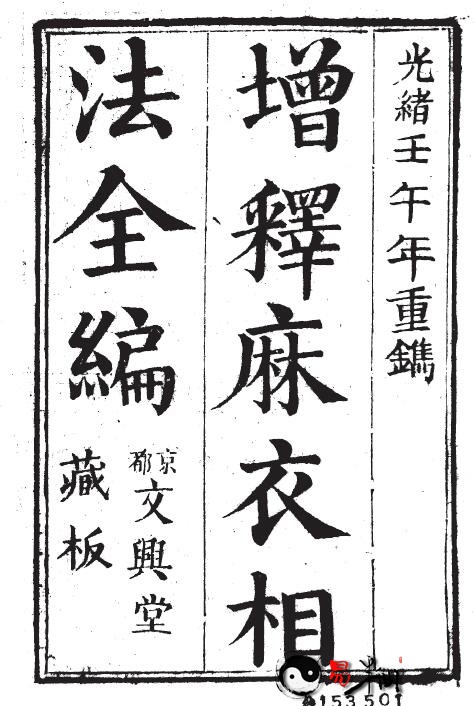 光緒壬午年重鐫
增釋麻衣相
法全編
京都文興堂
藏板
153501